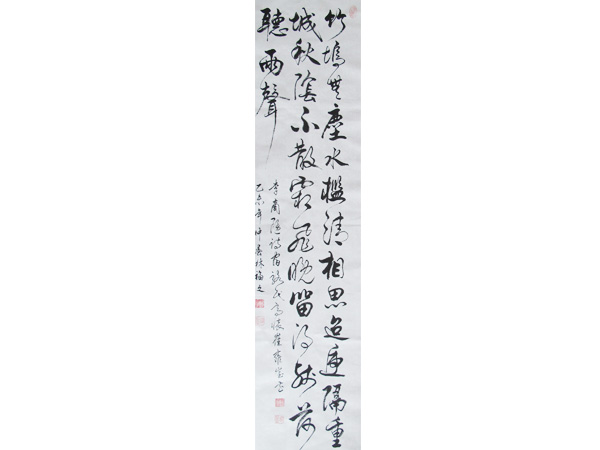 竹塢無塵水檻清相思迢遞隔重
城秋陰不散霜飛晚留得殘荷
聽雨聲
李商隱詩宿駱氏亭寄懷崔雍崔袞
年仲春林